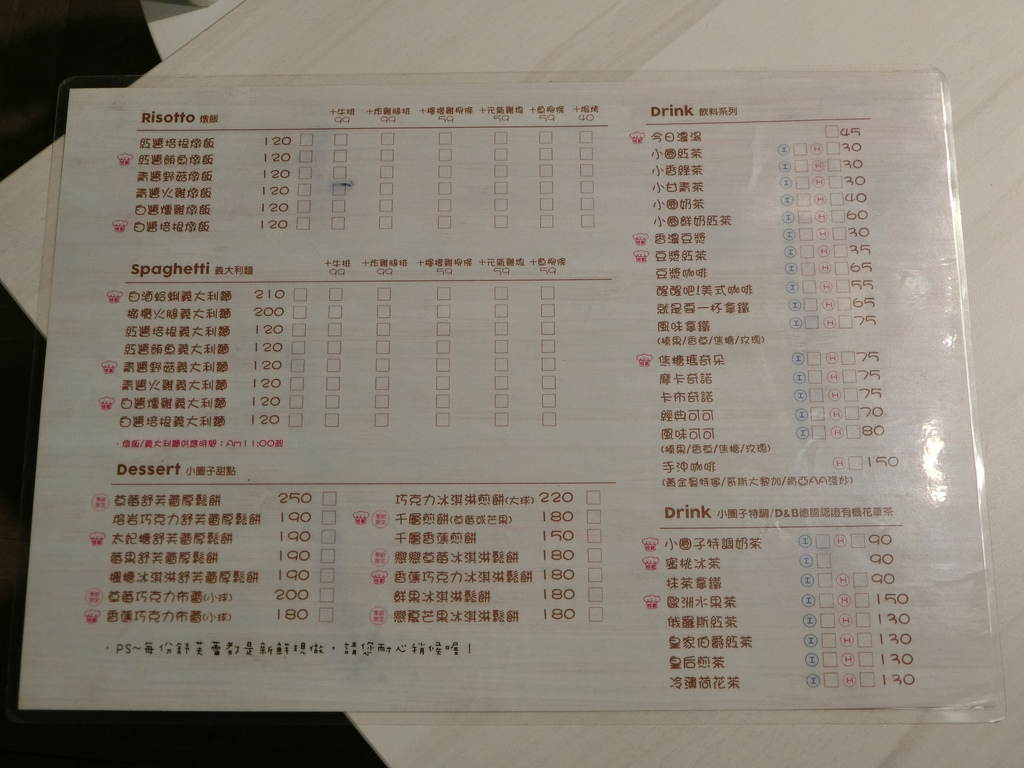 Risotto 燉飯
+牛排 99 +炸雞腿排 99 +檸檬雞柳條 59 +元氣雞塊 59 +魚柳條 59 +焗烤 40
紅醬培根燉飯 120
紅醬鮪魚燉飯 120
青醬野菇燉飯 120
青醬火雞燉飯 120
白醬燻雞燉飯 120
白醬培根燉飯 120
Spaghetti 義大利麵
+牛排 99 +炸雞腿排 99 +檸檬雞柳條 59 +元氣雞塊 59 +魚柳條 59
白酒蛤蜊義大利麵 210
橄欖火腿義大利麵 200
紅醬培根義大利麵 120
紅醬鮪魚義大利麵 120
青醬野菇義大利麵 120
青醬火雞義大利麵 120
白醬燻雞義大利麵 120
白醬培根義大利麵 120
・燉飯/義大利麵供應時間：Am11:00起
Dessert 小圈子甜點
草莓舒芙蕾厚鬆餅 250
熔岩巧克力舒芙蕾厚鬆餅 190
太妃糖舒芙蕾厚鬆餅 190
莓果舒芙蕾厚鬆餅 190
楓糖冰淇淋舒芙蕾厚鬆餅 190
草莓巧克力布蕾(小球) 200
香蕉巧克力布蕾(小球) 180
巧克力冰淇淋煎餅(大球) 220
千層煎餅(草莓或芒果) 180
千層香蕉煎餅 150
戀戀草莓冰淇淋鬆餅 180
香蕉巧克力冰淇淋鬆餅 180
鮮果冰淇淋鬆餅 180
戀夏芒果冰淇淋鬆餅 180
・PS~每份舒芙蕾都是新鮮現做，請您耐心稍候喔！
Drink 飲料系列
今日濃湯 45
小圈紅茶 I H 30
小香綠茶 I H 30
小甘青茶 I H 30
小圈奶茶 I H 40
小圈鮮奶紅茶 I H 60
香濃豆漿 I H 30
豆漿紅茶 I H 35
豆漿咖啡 I H 65
醒醒吧!美式咖啡 I H 55
就是要一杯拿鐵 I H 65
風味拿鐵 I H 75
(榛果/香草/焦糖/玫瑰)
焦糖瑪奇朵 I H 75
摩卡奇諾 I H 75
卡布奇諾 I H 75
經典可可 I H 70
風味可可 I H 80
(榛果/香草/焦糖/玫瑰)
手沖咖啡 H 150
(黃金曼特寧/哥斯大黎加/肯亞AA淺炒)
Drink 小圈子特調/D&B德國認證有機花草茶
小圈子特調奶茶 I H 90
蜜桃冰茶 I 90
抹茶拿鐵 I H 90
歐洲水果茶 I H 150
俄羅斯紅茶 I H 130
皇家伯爵紅茶 I H 130
皇后煎茶 I H 130
冷薄荷花茶 I H 130